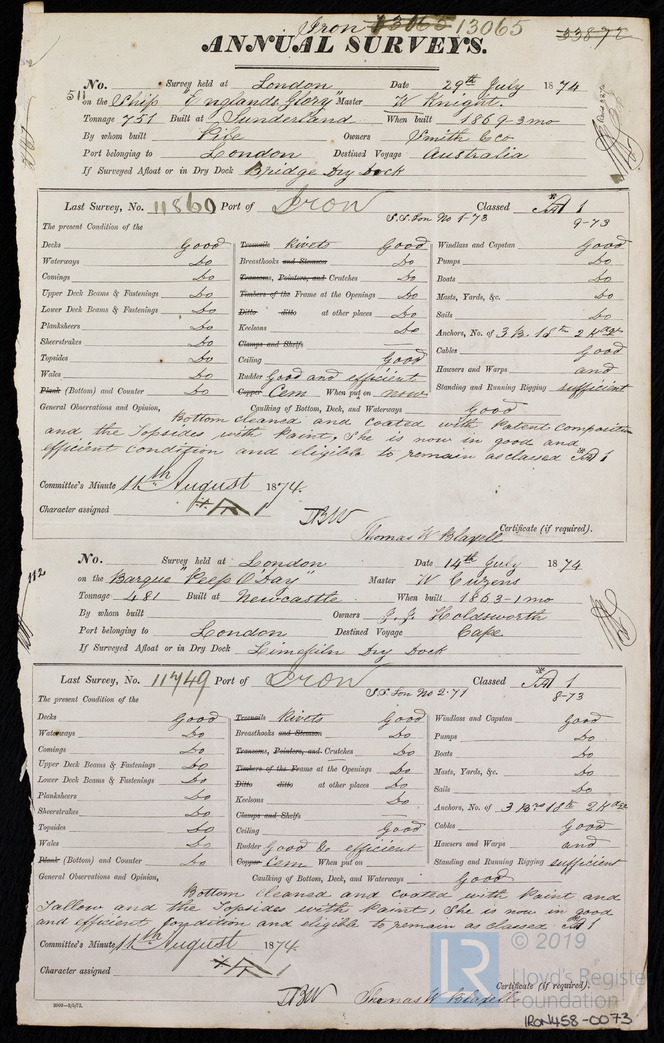 Iron 13065 13065 33872
ANNUAL SURVEYS.
511 No. Survey held at London Date 29th July 1874
on the Ship "Englands Glory" Master W Knight.
Tonnage 751 Built at Sunderland When built 1869-3mo
By whom built Pile Owners Smith & Co
Port belonging to London Destined Voyage Australia
If Surveyed Afloat or in Dry Dock Bridge Dry Dock
Last Survey, No. 11860 Port of Iron Classed A 1
S.S. Lon No 1-73 9-73
The present Condition of the
Decks Good
Waterways Do
Comings Do
Upper Deck Beams & Fastenings Do
Lower Deck Beams & Fastenings Do
Planksheers Do
Sheerstrakes Do
Topsides Do
Wales Do
Plank (Bottom) and Counter Do
Treenails Rivets Good
Breasthooks and Stemson Do
Transoms, Pointers, and Crutches Do
Timbers of the Frame at the Openings Do
Ditto ditto at other places Do
Keelsons Do
Clamps and Shelfs
Ceiling Good
Rudder Good and efficient
Copper Cem When put on now
Windlass and Capstan Good
Pumps Do
Boats Do
Masts, Yards, &c. Do
Sails Do
Anchors, No. of 3 B. 1 Stm 2 Kedge
Cables Good
Hawsers and Warps and
Standing and Running Rigging sufficient
General Observations and Opinion, Caulking of Bottom, Deck, and Waterways Good
Bottom cleaned and coated with Patent composition
and the Topsides with Paint, She is now in good and
efficient condition and eligible to remain as classed A 1
Committee's Minute 11th August 1874.
Character assigned A 1
Thomas W Blaxell Certificate (if required).
112 No. Survey held at London Date 14th July 1874
on the Barque "Peep O'Day" Master W Cuzens
Tonnage 481 Built at Newcastle When built 1863-1mo
By whom built Owners J. J. Holdsworth
Port belonging to London Destined Voyage Cape
If Surveyed Afloat or in Dry Dock Limekiln Dry Dock
Last Survey, No. 11749 Port of Iron Classed A 1
S.S. Lon No 2-71 8-73
The present Condition of the
Decks Good
Waterways Do
Comings Do
Upper Deck Beams & Fastenings Do
Lower Deck Beams & Fastenings Do
Planksheers Do
Sheerstrakes Do
Topsides Do
Wales Do
Plank (Bottom) and Counter Do
Treenails Rivets Good
Breasthooks and Stemson Do
Transoms, Pointers, and Crutches Do
Timbers of the Frame at the Openings Do
Ditto ditto at other places Do
Keelsons Do
Clamps and Shelfs
Ceiling Good
Rudder Good & efficient
Copper Cem When put on
Windlass and Capstan Good
Pumps Do
Boats Do
Masts, Yards, &c. Do
Sails Do
Anchors, No. of 3 Brs 1 Stm 2 Kdge
Cables Good
Hawsers and Warps and
Standing and Running Rigging sufficient
General Observations and Opinion, Caulking of Bottom, Deck, and Waterways Good
Bottom cleaned and coated with Paint and
Tallow and the Topsides with Paint, She is now in good
and efficient condition and eligible to remain as classed A 1
Committee's Minute 11th August 1874.
Character assigned A 1
Thomas W Blaxell Certificate (if required).
LR © 2019
Lloyd's Register
Foundation
IRON458-0073